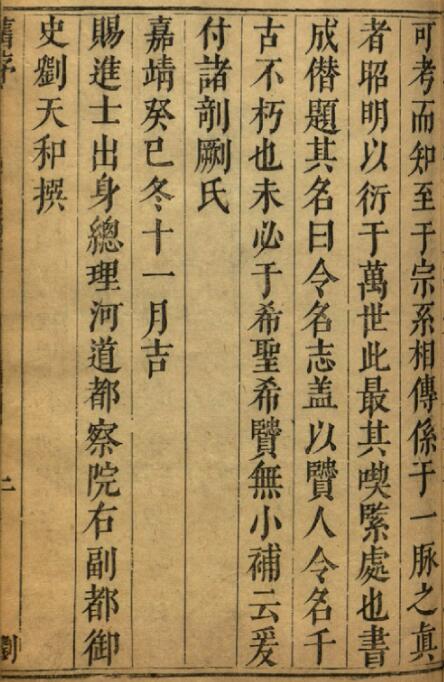 可考而知至于宗系相傳係于一脉之真
者昭明以衍于萬世此最其喫緊處也書
成僭題其名曰令名志盖以贒人令名千
古不朽也未必于希聖希贒無小補云爰
付諸剞劂氏
嘉靖癸巳冬十一月吉
賜進士出身總理河道都察院右副都御
史劉天和撰
舊序
二